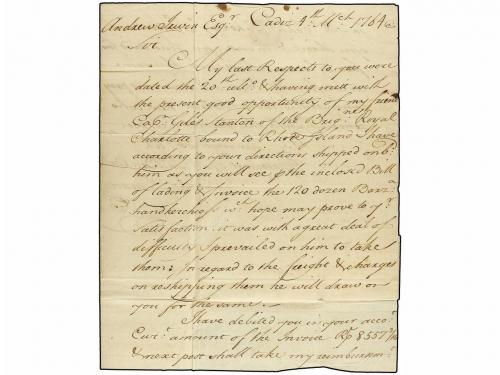 Andrew Irwin Esqr. Cadiz 4th. Mch. 1764
Sir
My last Respects to you were
dated the 20th. ulto. & having mett with
the present good opportunity of my friend
Capn. Giles Stanton of the Brign. Royal
Charlotte bound to Rhode Island I have
according to your directions shipped onbd.
him as you will see p the inclosed Bill
of lading & Invoice the 120 dozen
handkerchiefs wch. hope may prove to yr.
satisfaction: it was with a great deal of
difficulty I prevailed on him to take
them; in regard to the freight & charges
on reshipping them he will draw on
you for the same.
I have debited you in your acco.
Curt. amount of the Invoice 8557
& next post shall take my reimbursmt.